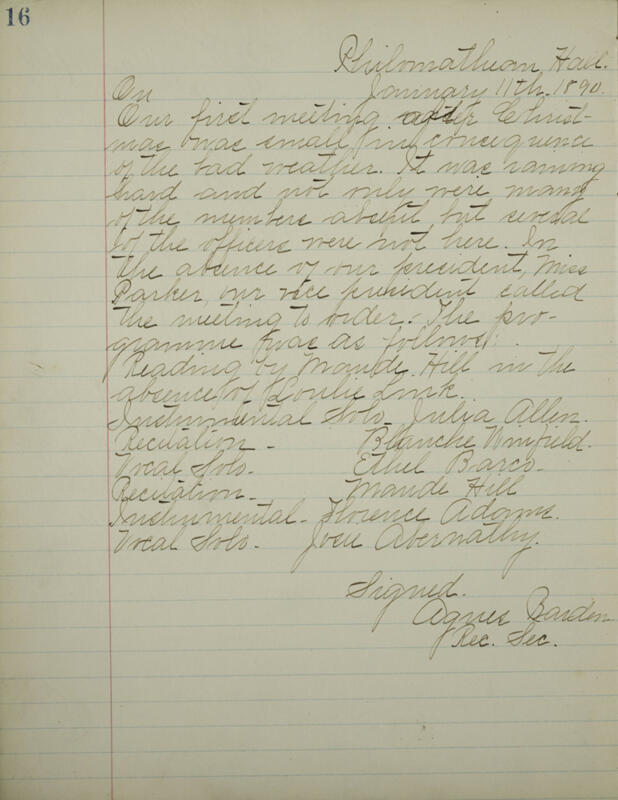 16
Philomathean Hall.
January 11th, 1890.
On
Our first meeting after Christ-
mas was small in consequence
of the bad weather. It was raining
hard and not only were many
of the members absent but several
of the officers were not here. In
the absence of our president, Miss
Parker, our vice president called
the meeting to order. The pro-
gramme was as follows:
Reading by Maude Hill in the
absence of Loulie Link.
Instrumental Solo. Julia Allen.
Recitation - Blanche Winfield.
Vocal Solo. Ethel Barco.
Recitation. Maude Hill
Instrumental. Florence Adams.
Vocal Solo. Josie Abernathy.
Signed.
Agnes Barden
Rec. Sec.